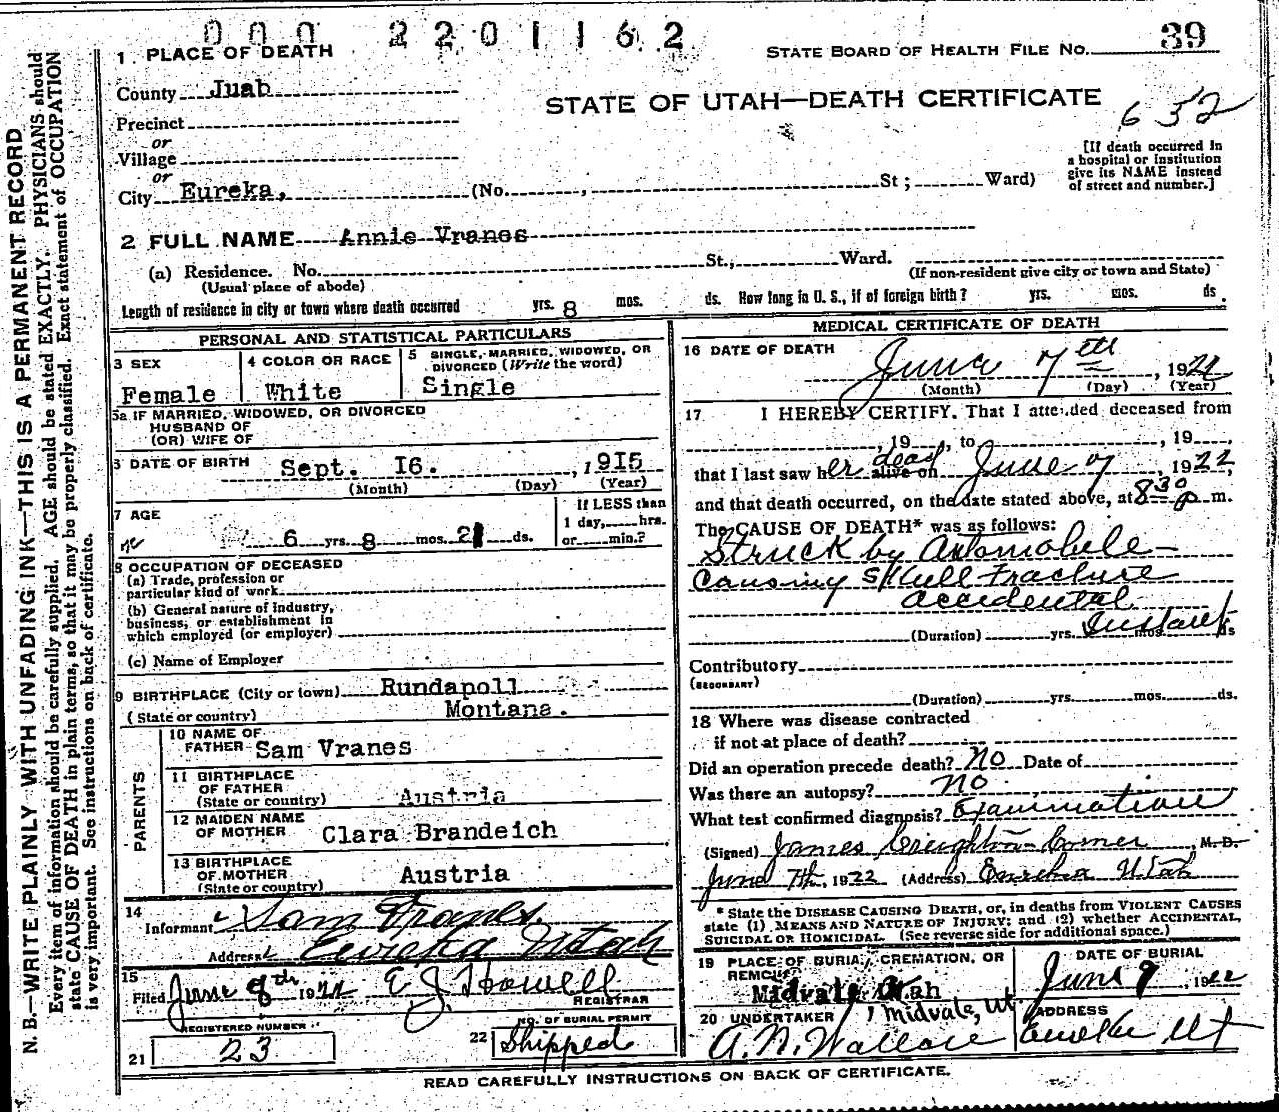 000 2201162
1 PLACE OF DEATH
STATE BOARD OF HEALTH FILE NO. 39
County Juab
STATE OF UTAH—DEATH CERTIFICATE
632
Precinct
or
Village
or
City Eureka, (No. , St ; Ward)
[If death occurred in
a hospital or institution
give its NAME instead
of street and number.]
2 FULL NAME Annie Vranes
(a) Residence. No. St., Ward.
(Usual place of abode)
(If non-resident give city or town and State)
Length of residence in city or town where death occurred yrs. 8 mos. ds. How long in U. S., if of foreign birth? yrs. mos. ds.
PERSONAL AND STATISTICAL PARTICULARS
3 SEX
Female
4 COLOR OR RACE
White
5 SINGLE, MARRIED, WIDOWED, OR
DIVORCED (Write the word)
Single
5a IF MARRIED, WIDOWED, OR DIVORCED
HUSBAND OF
(OR) WIFE OF
6 DATE OF BIRTH Sept. I6. , 1915
(Month) (Day) (Year)
7 AGE
6 yrs. 8 mos. 21 ds.
If LESS than
1 day, hrs.
or min.?
8 OCCUPATION OF DECEASED
(a) Trade, profession or
particular kind of work
(b) General nature of industry,
business, or establishment in
which employed (or employer)
(c) Name of Employer
9 BIRTHPLACE (City or town) Rundapoll
(State or country) Montana.
PARENTS
10 NAME OF
FATHER Sam Vranes
11 BIRTHPLACE
OF FATHER
(State or country) Austria
12 MAIDEN NAME
OF MOTHER Clara Brandeich
13 BIRTHPLACE
OF MOTHER
(State or country) Austria
14
Informant Sam Vranes.
Address Eureka Utah
15
Filed June 8th 1922 E J Howell
REGISTRAR
REGISTERED NUMBER
21 23
NO. OF BURIAL PERMIT
22 Shipped
MEDICAL CERTIFICATE OF DEATH
16 DATE OF DEATH
June 7th , 1922
(Month) (Day) (Year)
17 I HEREBY CERTIFY. That I attended deceased from
, 19 , to , 19 ,
that I last saw her dead alive on June 7 , 1922,
and that death occurred, on the date stated above, at 8 30 p m.
The CAUSE OF DEATH* was as follows:
Struck by Automobile—
Causing Skull Fracture
accidental
(Duration) yrs. mos. ds
Instant
Contributory
(SECONDARY)
(Duration) yrs. mos. ds.
18 Where was disease contracted
if not at place of death?
Did an operation precede death? No Date of
Was there an autopsy? No
What test confirmed diagnosis? Examination
(Signed) James Creighton Coroner , M. D.
June 7th, 1922 (Address) Eureka Utah
* State the DISEASE CAUSING DEATH, or, in deaths from VIOLENT CAUSES
state (1) MEANS AND NATURE OF INJURY; and (2) whether ACCIDENTAL,
SUICIDAL OR HOMICIDAL. (See reverse side for additional space.)
19 PLACE OF BURIAL, CREMATION, OR
REMOVAL
Midvale Utah
Midvale, Ut.
DATE OF BURIAL
June 9 , 1922
20 UNDERTAKER
A. N. Wallace
ADDRESS
Eureka Ut
READ CAREFULLY INSTRUCTIONS ON BACK OF CERTIFICATE.
N. B.—WRITE PLAINLY WITH UNFADING INK—THIS IS A PERMANENT RECORD
Every item of information should be carefully supplied. AGE should be stated EXACTLY. PHYSICIANS should
state CAUSE OF DEATH in plain terms, so that it may be properly classified. Exact statement of OCCUPATION
is very important. See instructions on back of certificate.